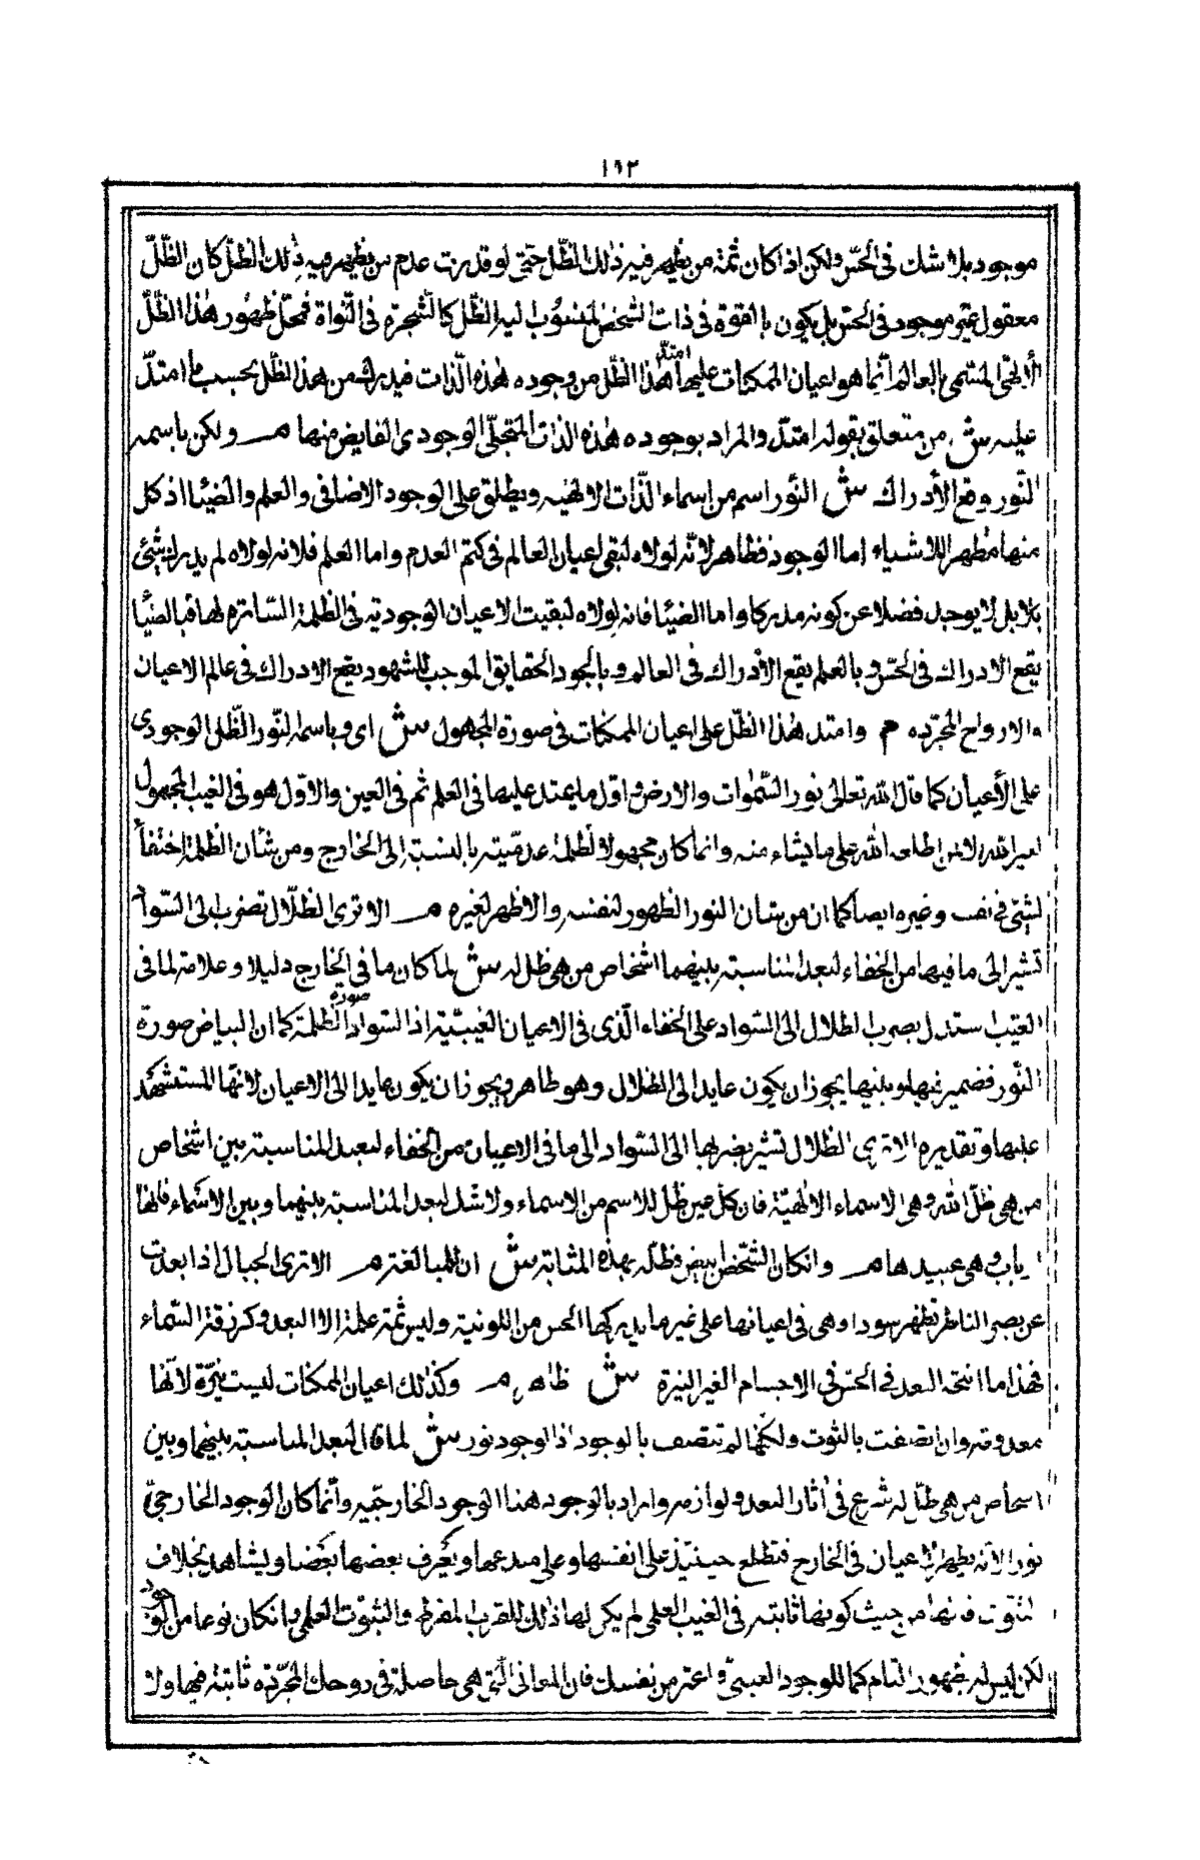 ١٩٢
موجود بلا شك فى الحسّ ولكن اذا كان ثمة من يظهر فيه ذلك الظّل حتى لو قدرت عدم من يظهر فيه ذلك الظل كان الظّلّ
معقولا غير موجود فى الحس بل يكون بالقوة فى ذات الشخص المنسوب اليه الظّل كالشجرة فى النّواة فمحلّ ظهور هذا الظّلّ
الألهىّ المسمّى بالعالم أنّما هو اعيان الممكنات عليها امتدّ هذا الظّل من وجود هذه الذّات فيدرك من هذا الظّل بحسب ما امتدّ
عليه ش من متعلق بقوله امتدّ والمراد بوجود هذه الذات التجلّى الوجودى الفايض منها م ولكن باسمه
النّور وقع الأدراك ش النّور اسم من اسماء الذّات الالهيه ويطلق على الوجود الاضافى والعلم والضيا اذ كل
منها مظهر للاشياء اما الوجود فظاهر لانّه لولاه لبقى اعيان العالم فى كتم العدم واما العلم فلانه لولاه لم يدرك شئ
بلا بل لا يوجد فضلا عن كونه مدركا واما الضيا فانه لولاه لبقيت الاعيان الوجودية فى الظلمة الساترة لها فبالضيا
يقع الادراك فى الحسّ وبالعلم يقع الأدراك فى العالم وبالوجود الحقايق الموجب للشهود يقع الادراك فى عالم الاعيان
والارواح المجرّده م وامتد هذا الظّل على اعيان الممكنات فى صورة المجهول ش اى وباسمه النّور الظّل الوجودى
على الأعيان كما قال الله تعالى نور السّموات والارض واوّل ما يمتد عليها فى العلم ثم فى العين والاوّل هو فى الغيب المجهول
لغير الله الا لمن اطلعه الله على ما يشاء منه وانما كان مجهولا لظلمة عدميّته بالنسبة إلى الخارج ومن شأن الظلمة اختفأ
الشىّ فى نفسه وغيره ايضا كما ان من شان النور الظهور لنفسه والاظهر لغيره م الا ترى الظّلال تضرب الى السّواد
تشير الى ما فيها من الخفاء لبعد المناسبة بينهما اشخاص من هى ظل له ش لما كان ما فى الخارج دليلا وعلامة لما فى
الغيب استدل بضرب الظلال الى السّواد على الخفاء الّذى فى الاعيان الغيبيّة اذ السّواد صورة الظلمة كما ان البياض صورة
النّور فضمير فيها وبينها يجوز ان يكون عايدا الى الظلال وهو ظاهر ويجوز ان يكون عايدا الى الاعيان لانّها المستشهد
عليها وتقديره الا ترى الظلال تشير بضربها الى السّواد الى ما فى الاعيان من الخفاء لبعد المناسبة بين اشخاص
من هى ظلّ الله وهى الاسماء الالهيّة فان كل عين ظلّ للاسم من الاسماء ولا شك لبعد المناسبة بينهما وبين الاسماء فانها
ارباب وهى عبيدها م وان كان الشّخص ابيض فظلّه بهذه المثابة ش ان للمبالغة م الا ترى الجبال اذا بعدت
عن بصر الناظر تظهر سودا وهى فى اعيانها على غير ما يدركها الحس من اللونية وليس ثمة علة الا البعد وكزرقة السّماء
فهذا ما انتجه البعد فى الحسّ فى الاجسام الغير النيرة ش ظاهر م وكذلك اعيان الممكنات ليست نيّرة لانّها
معدومة وان اتصفت بالثوت ولكنّها لم تتصف بالوجود اذ الوجود نور ش لما قال لبعد المناسبة بينهما وبين
اشخاص من هى ظلّ له شرع فى اثار البعد ولوازمه والمراد بالوجود هنا الوجود الخارجىّ وانّما كان الوجود الخارجىّ
نورا لانّه يظهر الاعيان فى الخارج فتطلع حينئذ على انفسها وعلى مبدعها ويعرف بعضها بعضا ويشاهده بخلاف
الثّبوت فانها من حيث كونها ثابتة فى الغيب العلمى لم يكن لها ذلك للقرب المفرط والثبوت العلمى وان كان نوعا من الوجود
لكن ليس له ظهور التام كما للوجود العينىّ واعتبر من نفسك فان المعانى الّتى هى حاصلة فى روحك المجرّده ثابتة فيها ولا